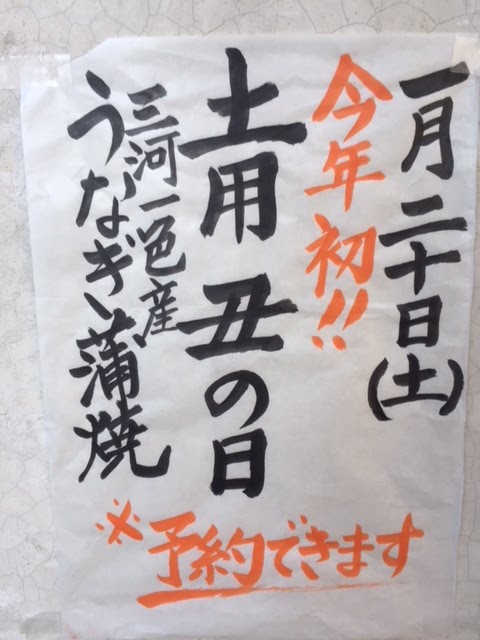 一月二十日(土)
今年初!!
土用丑の日
三河一色産
うなぎ蒲焼
※予約できます